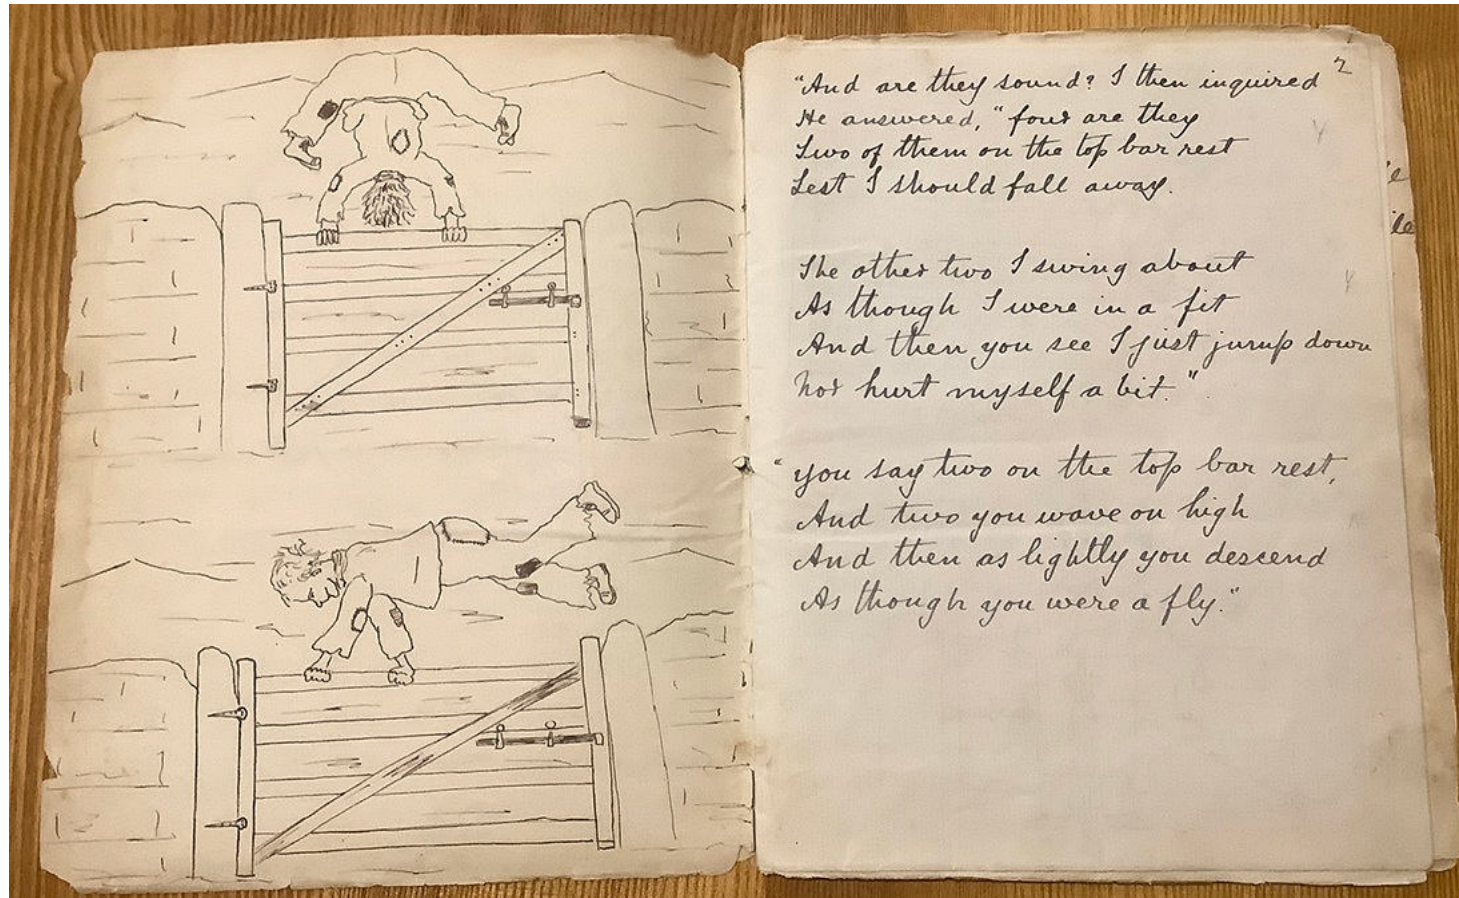 2
"And are they sound? I then inquired
He answered, "four are they
Two of them on the top bar rest
Lest I should fall away.
The other two I swing about
As though I were in a fit
And then you see I just jump down
Nor hurt myself a bit."
"you say two on the top bar rest,
And two you wave on high
And then as lightly you descend
As though you were a fly."